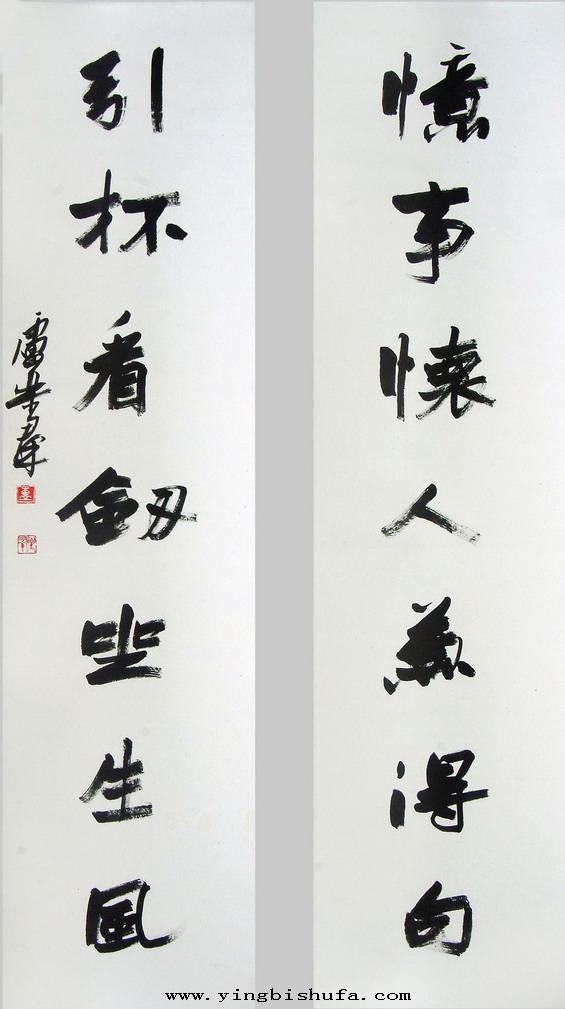 憶事懷人兼得句
引杯看劔坐生風
www.yingbishufa.com